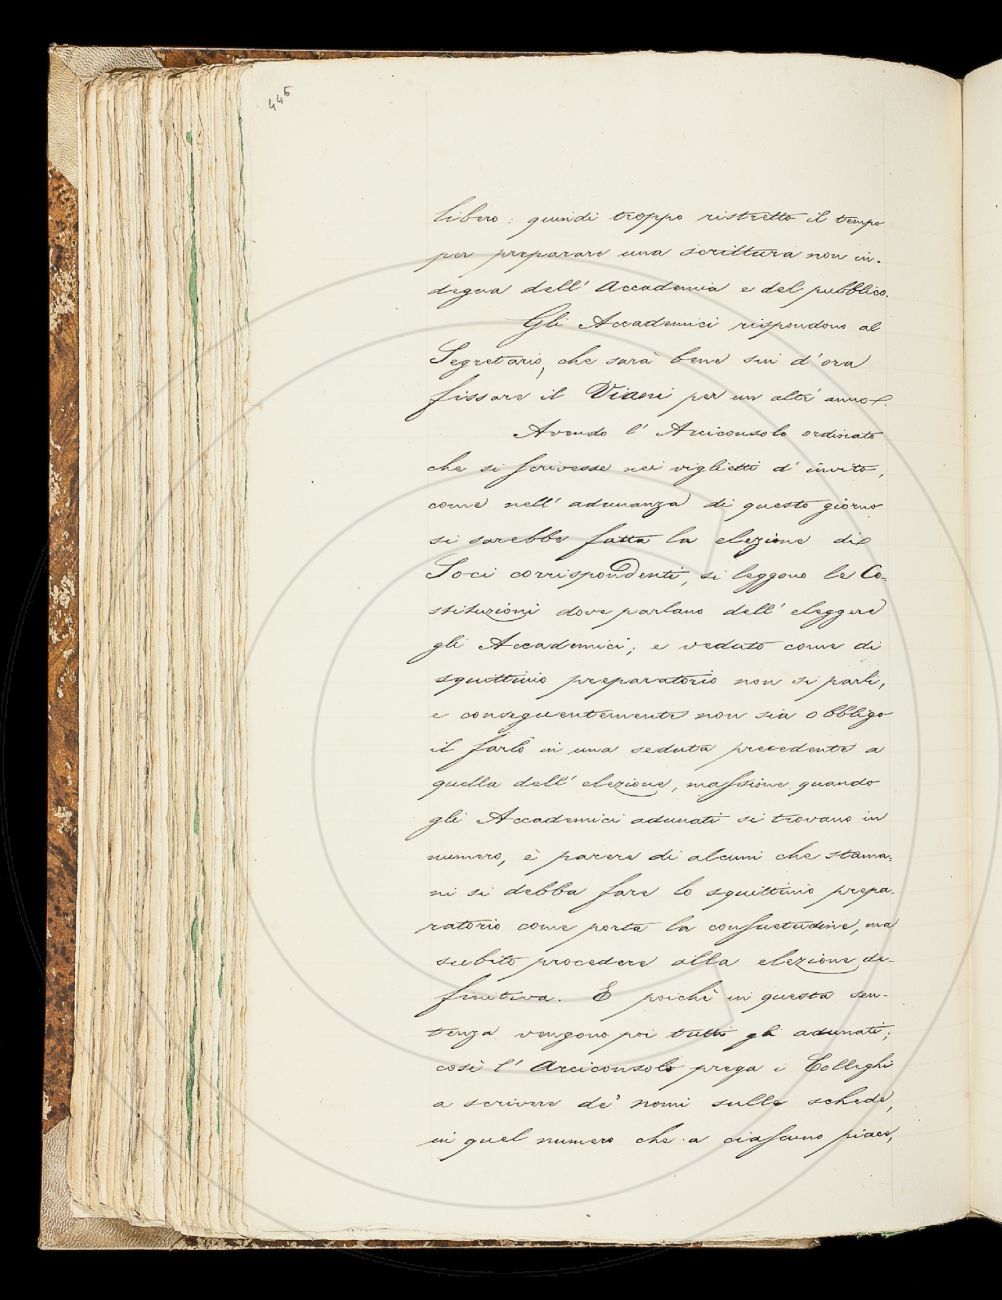 445
libero: quindi troppo ristretto il tempo
per preparare una scrittura non in-
degna dell' Accademia e del pubblico.
Gli Accademici rispondono al
Segretario, che sarà bene sin d'ora
fissare il Viani per un altr' anno.
Avendo l' Arciconsolo ordinato
che si scrivesse nei viglietti d' invito,
come nell' adunanza di questo giorno
si sarebbe fatta la elezione di
Soci corrispondenti, si leggono le Co-
stituzioni dove parlano dell' eleggere
gli Accademici; e veduto come di
squittinio preparatorio non si parli,
e conseguentemente non sia obbligo
il farlo in una seduta precedente a
quella dell' elezione, massime quando
gli Accademici adunati si trovano in
numero, è parere di alcuni che stama-
ni si debba fare lo squittinio prepa-
ratorio come porta la consuetudine, ma
subito procedere alla elezione de-
finitiva. E poichè in questa sen-
tenza vengono poi tutti gli adunati;
così l' Arciconsolo prega i Colleghi
a scrivere de' nomi sulle schede,
in quel numero che a ciascuno piace,